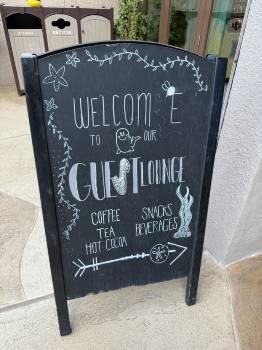 RECYCLE
WELCOME
TO OUR
GUEST LOUNGE
COFFEE
TEA
HOT COCOA
SNACKS
BEVERAGES